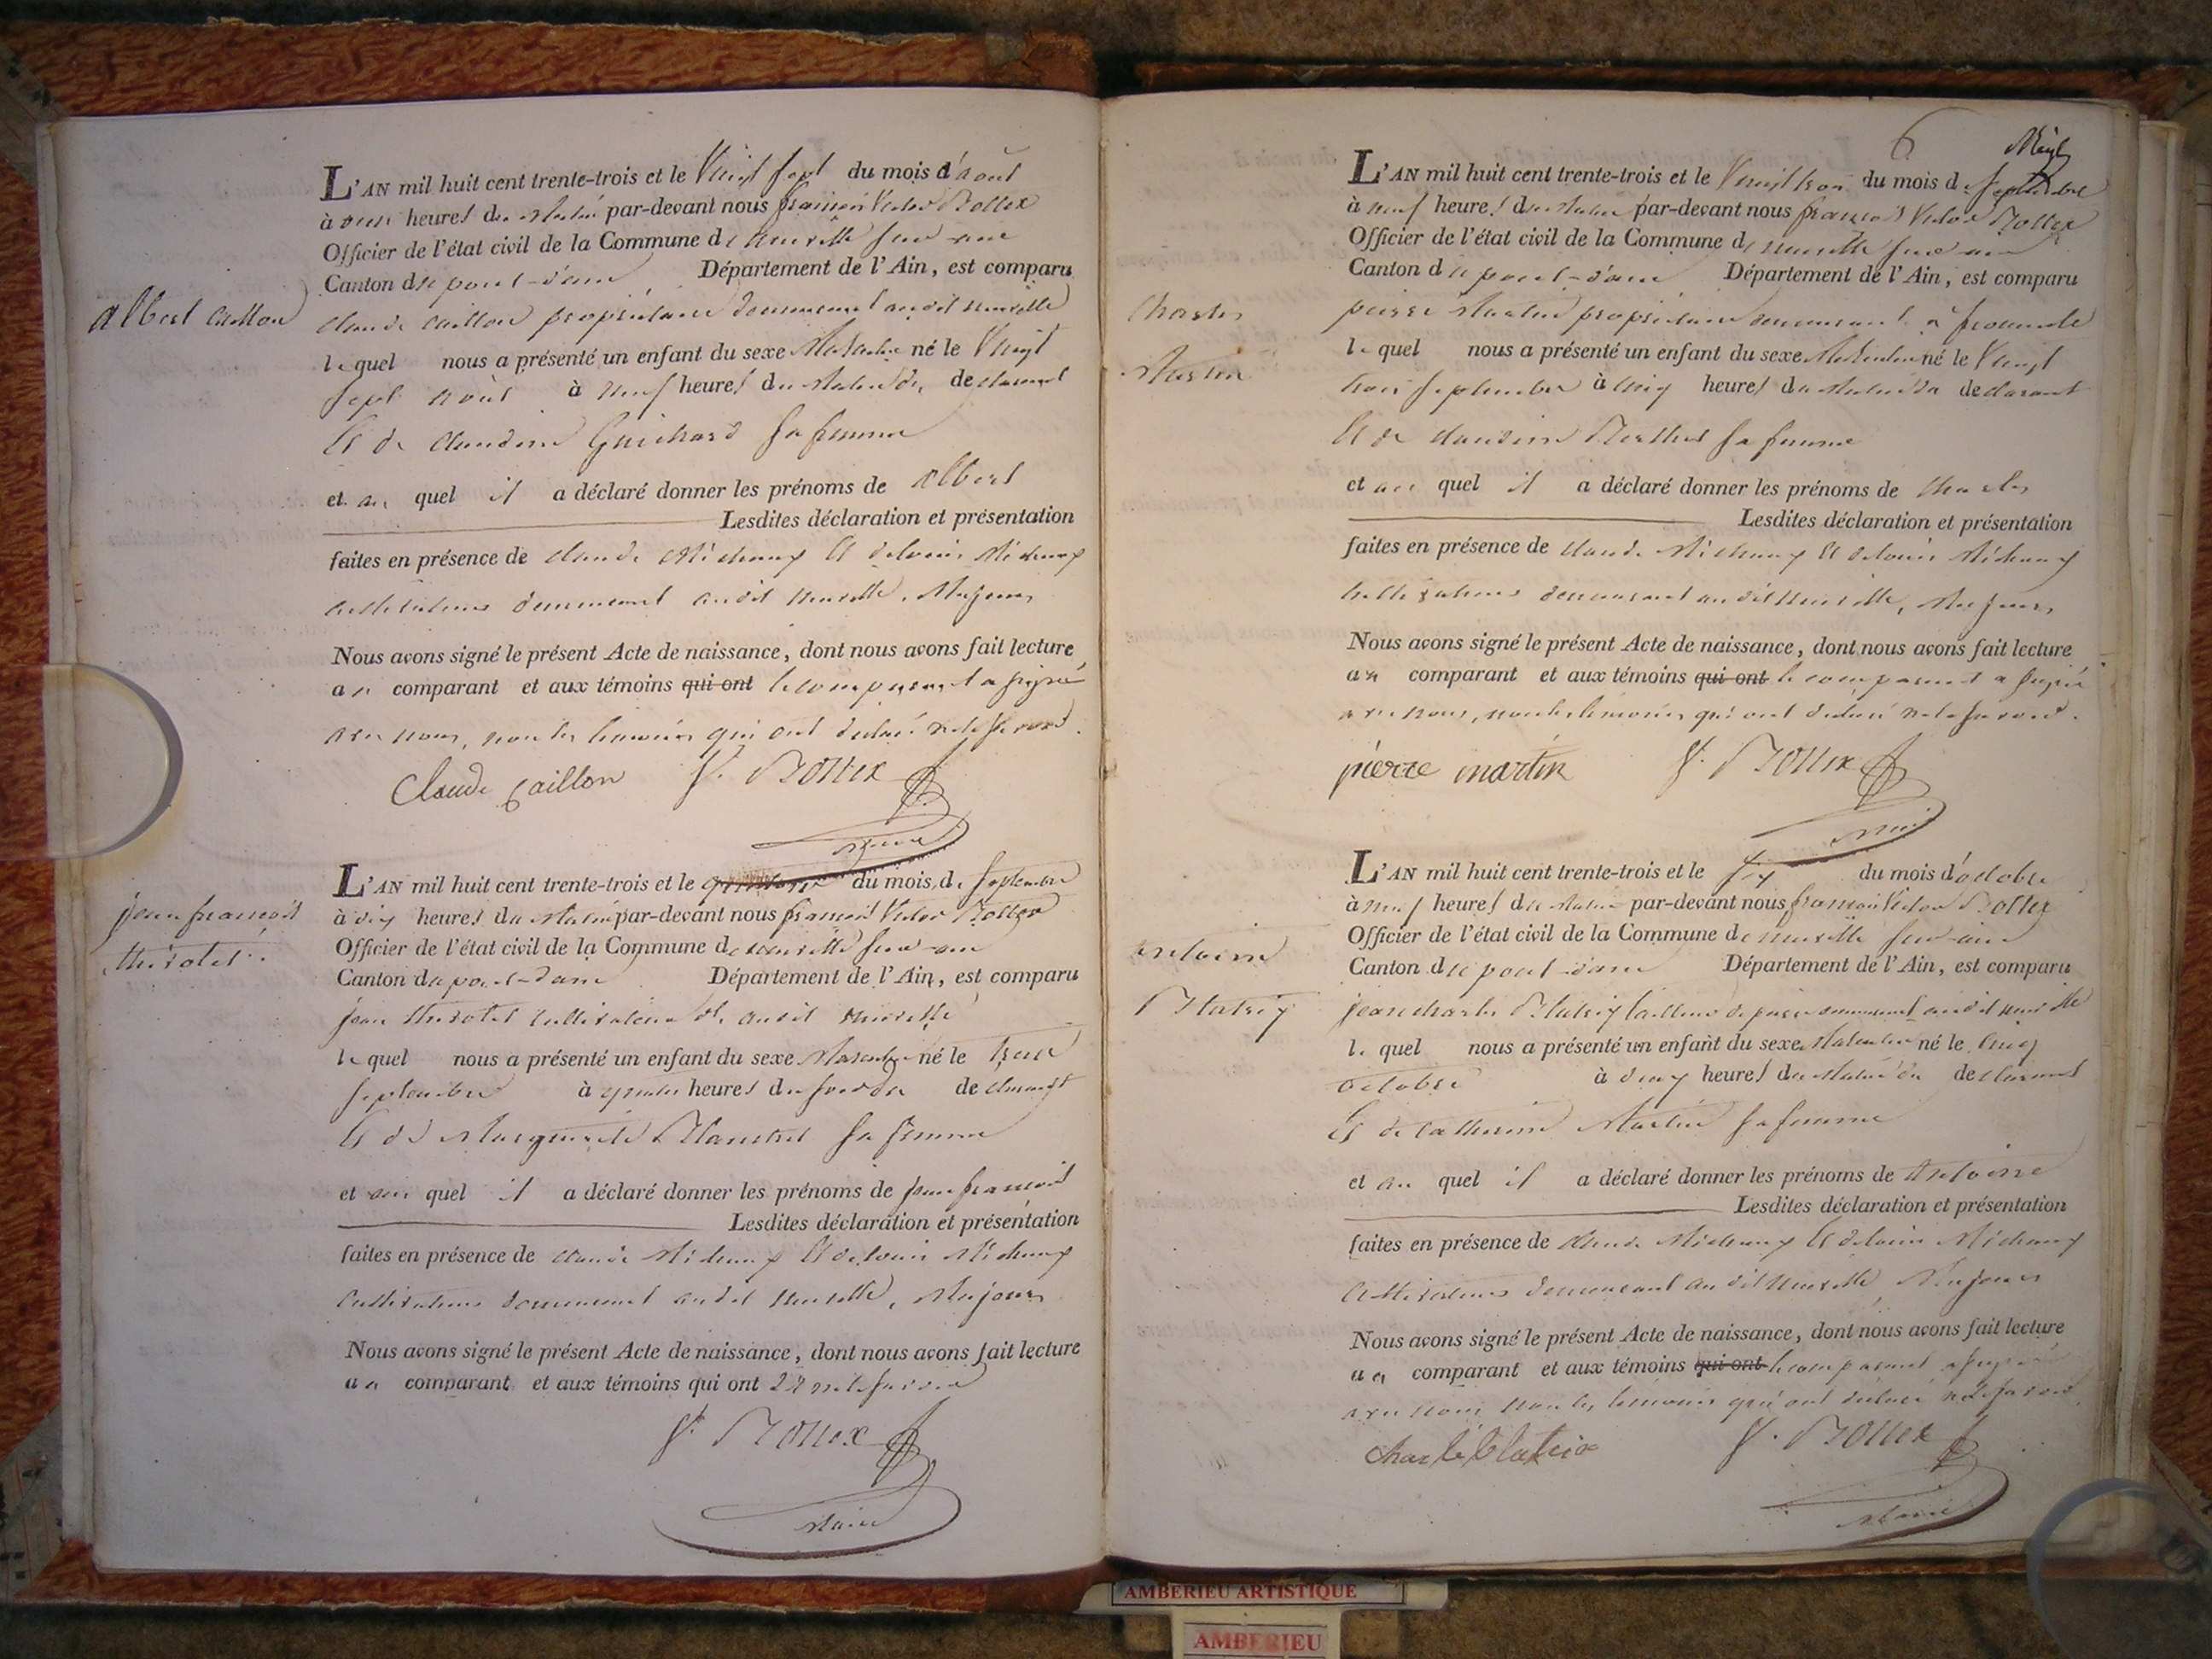 albert caillon
L'AN mil huit cent trente-trois et le Vingt sept du mois d'aout
à onze heures du matin par-devant nous françois Victor Bollex
Officier de l'état civil de la Commune de neuville sur ain
Canton de pont-d'ain Département de l'Ain, est comparu
claude caillon propriétaire demeurant audit neuville
lequel nous a présenté un enfant du sexe Masculin né le Vingt
sept août à neuf heures du matin de declarant
Et de claudine Guichard sa femme
et au quel il a déclaré donner les prénoms de albert
Lesdites déclaration et présentation
faites en présence de claude Michaux Et de louis Michaux
cultivateurs demeurant audit neuville, Majeurs
Nous avons signé le présent Acte de naissance, dont nous avons fait lecture
au comparant et aux témoins qui ont le comparant a signé
avec nous, non les temoins qui ont declaré ne le savoir.
Claude caillon V. Bollex
Maire
jean françois
thirotet
L'AN mil huit cent trente-trois et le du mois de septembre
à dix heures du matin par-devant nous françois Victor Bollex
Officier de l'état civil de la Commune de neuville sur ain
Canton de pont-d'ain Département de l'Ain, est comparu
jean thirotet cultivateur audit neuville
lequel nous a présenté un enfant du sexe Masculin né le treize
septembre à quatre heures du soir de declarant
Et de Marguerite sa femme
et au quel il a déclaré donner les prénoms de jean françois
Lesdites déclaration et présentation
faites en présence de claude Michaux Et de louis Michaux
cultivateurs demeurant audit neuville, Majeurs
Nous avons signé le présent Acte de naissance, dont nous avons fait lecture
au comparant et aux témoins qui ont dit ne le savoir
V. Bollex
Maire
6
Charles
Martin
L'AN mil huit cent trente-trois et le Vingt trois du mois de septembre
à neuf heures du matin par-devant nous françois Victor Bollex
Officier de l'état civil de la Commune de neuville sur ain
Canton de pont-d'ain Département de l'Ain, est comparu
pierre Martin propriétaire demeurant à
lequel nous a présenté un enfant du sexe Masculin né le Vingt
trois septembre à cinq heures du matin de declarant
Et de claudine Berthet sa femme
et au quel il a déclaré donner les prénoms de Charles
Lesdites déclaration et présentation
faites en présence de claude Michaux Et de louis Michaux
cultivateurs demeurant audit neuville, Majeurs
Nous avons signé le présent Acte de naissance, dont nous avons fait lecture
au comparant et aux témoins qui ont le comparant a signé
avec nous, non les temoins qui ont declaré ne le savoir.
pierre martin V. Bollex
Maire
antoine
Blatrix
L'AN mil huit cent trente-trois et le six du mois d'octobre
à neuf heures du matin par-devant nous françois Victor Bollex
Officier de l'état civil de la Commune de neuville sur ain
Canton de pont-d'ain Département de l'Ain, est comparu
jean charles Blatrix tailleur de pierre demeurant audit neuville
lequel nous a présenté un enfant du sexe Masculin né le cinq
octobre à deux heures du matin de declarant
Et de Catherine Martin sa femme
et au quel il a déclaré donner les prénoms de Antoine
Lesdites déclaration et présentation
faites en présence de claude Michaux Et de louis Michaux
cultivateurs demeurant audit neuville, Majeurs
Nous avons signé le présent Acte de naissance, dont nous avons fait lecture
au comparant et aux témoins qui ont le comparant a signé
avec nous non les temoins qui ont declaré ne le savoir
Charle Blatrix V. Bollex
Maire
AMBERIEU ARTISTIQUE
AMBERIEU